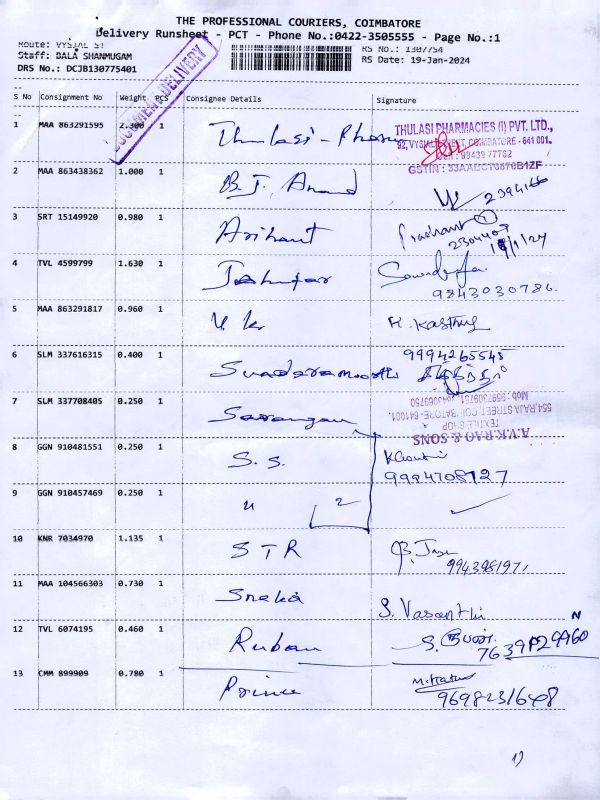 THE PROFESSIONAL COURIERS, COIMBATORE
Delivery Runsheet - PCT - Phone No.:0422-3505555 - Page No.:1
Route: VYSIAL ST
RS No.: 1307754
Staff: BALA SHANMUGAM
RS Date: 19-Jan-2024
DRS No.: DCJB130775401
DOCUMENT DELIVERY
S No Consignment No Weight PCS Consignee Details Signature
1 MAA 863291595 2.300 1 Thulasi - Pharma
THULASI PHARMACIES (I) PVT. LTD.,
92, VYSIAL STREET, COIMBATORE - 641 001.
99439 77762
GSTIN :
2 MAA 863438362 1.000 1 B.J. Anand
3 SRT 15149920 0.980 1 Arihant Prashant
2304407 19/1/24
4 TVL 4599799 1.630 1
9843030786.
5 MAA 863291817 0.960 1 K. Kasthuri
6 SLM 337616315 0.400 1 Sundaramoorthi 9994265545
7 SLM 337708405 0.250 1 Sarangan
A.V.K.RAO & SONS
TEXTILE SHOP
554, RAJA STREET, COIMBATORE- 641001.
8 GGN 910481551 0.250 1 S.S.
9994708127
9 GGN 910457469 0.250 1 " 2
10 KNR 7034970 1.135 1 STR
11 MAA 104566303 0.730 1 Sneka S. Vasanthi
12 TVL 6074195 0.460 1 Ruban
13 CMM 899909 0.780 1 Prince